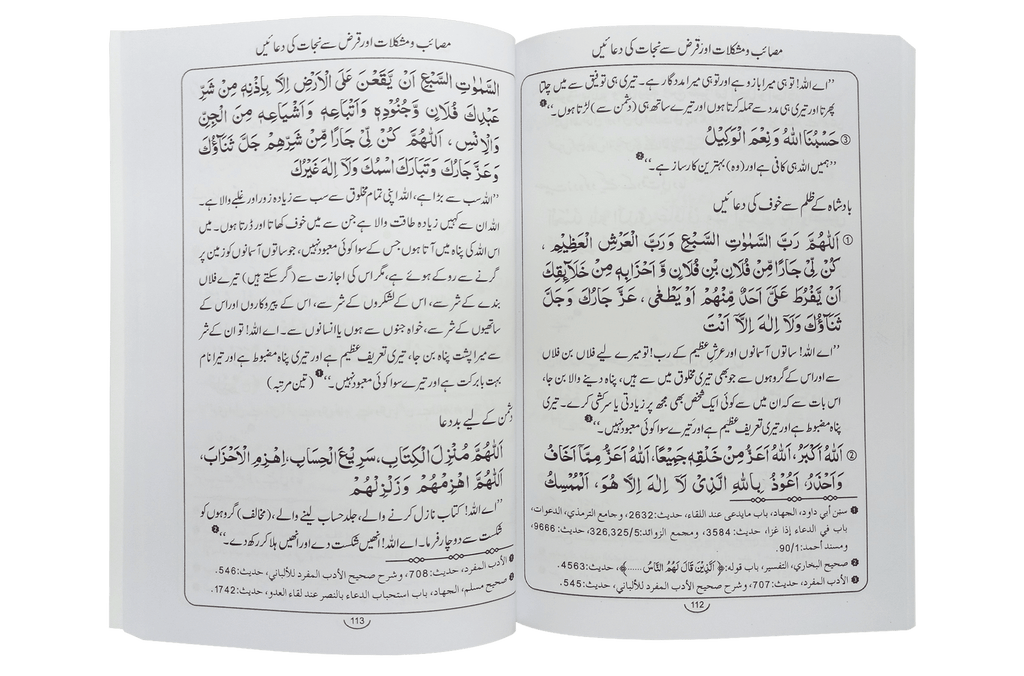 مصائب و مشکلات اور قرض سے نجات کی دعائیں
’’اے اللہ! تو ہی میرا بازو ہے اور تو ہی میرا مددگار ہے۔ تیری ہی توفیق سے میں چلتا
پھرتا اور تیری ہی مدد سے حملہ کرتا ہوں اور تیرے ساتھ ہی (دشمن سے) لڑتا ہوں۔‘‘ ❶
③ حَسْبُنَا اللهُ وَنِعْمَ الْوَكِيْلُ
’’ہمیں اللہ ہی کافی ہے اور (وہ) بہترین کارساز ہے۔‘‘ ❷
بادشاہ کے ظلم سے خوف کی دعائیں
① اَللّٰهُمَّ رَبَّ السَّمٰوٰتِ السَّبْعِ وَرَبَّ الْعَرْشِ الْعَظِيْمِ ،
كُنْ لِّيْ جَارًا مِّنْ فُلَانِ بْنِ فُلَانٍ وَّ اَحْزَابِهٖ مِنْ خَلَآئِقِكَ
اَنْ يَّفْرُطَ عَلَيَّ اَحَدٌ مِّنْهُمْ اَوْ يَطْغٰى ، عَزَّ جَارُكَ وَجَلَّ
ثَنَآؤُكَ وَلَآ اِلٰهَ اِلَّآ اَنْتَ
’’اے اللہ! ساتوں آسمانوں اور عرشِ عظیم کے رب! تو میرے لیے فلاں بن فلاں
سے اور اس کے گروہوں سے جو بھی تیری مخلوق میں سے ہیں، پناہ دینے والا بن جا،
اس بات سے کہ ان میں سے کوئی ایک شخص بھی مجھ پر زیادتی یا سرکشی کرے۔ تیری
پناہ مضبوط ہے اور تیری تعریف عظیم ہے اور تیرے سوا کوئی معبود نہیں۔‘‘ ❸
② اَللهُ اَكْبَرُ، اَللهُ اَعَزُّ مِنْ خَلْقِهٖ جَمِيْعًا، اَللهُ اَعَزُّ مِمَّآ اَخَافُ
وَاَحْذَرُ، اَعُوْذُ بِاللهِ الَّذِيْ لَآ اِلٰهَ اِلَّا هُوَ، الْمُمْسِكُ
❶ سنن أبي داود، الجهاد، باب مايدعى عند اللقاء، حديث:2632، وجامع الترمذي، الدعوات،
باب في الدعاء إذا غزا، حديث: 3584، ومجمع الزوائد:326,325/5، حديث: 9666،
ومسند أحمد:90/1.
❷ صحيح البخاري، التفسير، باب قوله:﴿ اَلَّذِيْنَ قَالَ لَهُمُ النَّاسُ ......﴾، حديث:4563.
❸ الأدب المفرد، حديث:707، وشرح صحيح الأدب المفرد للألباني، حديث:545.
112
مصائب و مشکلات اور قرض سے نجات کی دعائیں
السَّمٰوٰتِ السَّبْعِ اَنْ يَّقَعْنَ عَلَى الْاَرْضِ اِلَّا بِاِذْنِهٖ مِنْ شَرِّ
عَبْدِكَ فُلَانٍ وَّجُنُوْدِهٖ وَاَتْبَاعِهٖ وَاَشْيَاعِهٖ مِنَ الْجِنِّ
وَالْاِنْسِ ، اَللّٰهُمَّ كُنْ لِّيْ جَارًا مِّنْ شَرِّهِمْ جَلَّ ثَنَآؤُكَ
وَعَزَّ جَارُكَ وَتَبَارَكَ اسْمُكَ وَلَآ اِلٰهَ غَيْرُكَ
’’اللہ سب سے بڑا ہے، اللہ اپنی تمام مخلوق سے سب سے زیادہ زور اور غلبے والا ہے۔
اللہ ان سے کہیں زیادہ طاقت والا ہے جن سے میں خوف کھاتا اور ڈرتا ہوں۔ میں
اس اللہ کی پناہ میں آتا ہوں جس کے سوا کوئی معبود نہیں، جو ساتوں آسمانوں کو زمین پر
گرنے سے روکے ہوئے ہے، مگر اس کی اجازت سے (گر سکتے ہیں) تیرے فلاں
بندے کے شر سے، اس کے لشکروں کے شر سے، اس کے پیروکاروں اور اس کے
ساتھیوں کے شر سے، خواہ جنوں سے ہوں یا انسانوں سے۔ اے اللہ! تو ان کے شر
سے میرا پشت پناہ بن جا، تیری تعریف عظیم ہے اور تیری پناہ مضبوط ہے اور تیرا نام
بہت بابرکت ہے اور تیرے سوا کوئی معبود نہیں۔‘‘ ❶ (تین مرتبہ)
دشمن کے لیے بددعا
اَللّٰهُمَّ مُنْزِلَ الْكِتَابِ، سَرِيْعَ الْحِسَابِ، اِهْزِمِ الْاَحْزَابَ،
اَللّٰهُمَّ اهْزِمْهُمْ وَزَلْزِلْهُمْ
’’اے اللہ! کتاب نازل کرنے والے، جلد حساب لینے والے، (مخالف) گروہوں کو
شکست سے دوچار فرما۔ اے اللہ! انھیں شکست دے اور انھیں ہلا کر رکھ دے۔‘‘ ❷
❶ الأدب المفرد، حديث: 708، وشرح صحيح الأدب المفرد للألباني، حديث:546.
❷ صحيح مسلم، الجهاد، باب استحباب الدعاء بالنصر عند لقاء العدو، حديث:1742.
113